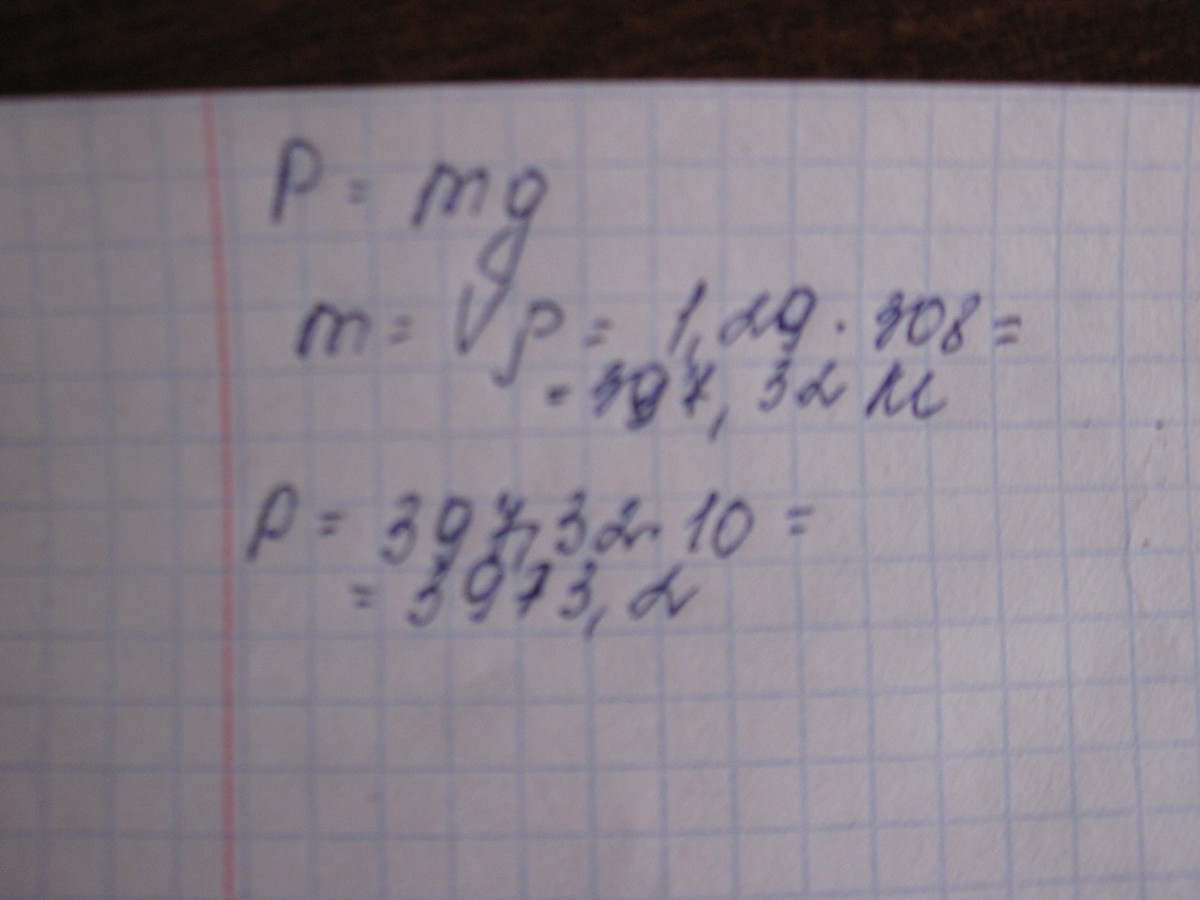 P = mg
m = Vρ = 1,29 · 308 =
= 397,32 м
P = 397,32 · 10 =
= 3973,2